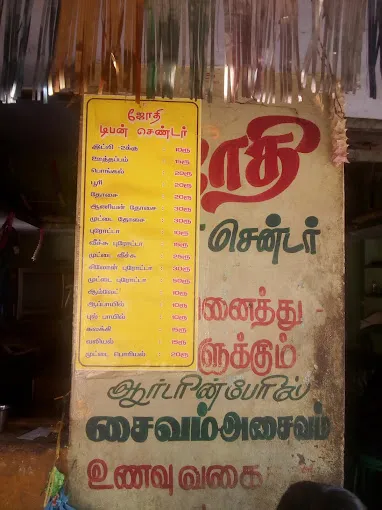 ஜோதி
டிபன் செண்டர்
இட்லி -2க்கு 10ரூ
ஊத்தப்பம் : 15ரூ
பொங்கல் : 20ரூ
பூரி : 20ரூ
தோசை : 20ரூ
ஆனியன் தோசை : 30ரூ
முட்டை தோசை : 30ரூ
புரோட்டா : 10ரூ
வீச்சு புரோட்டா : 15ரூ
முட்டை வீச்சு : 25ரூ
சிலோன் புரோட்டா : 30ரூ
முட்டை புரோட்டா : 50ரூ
ஆம்லேட் : 10ரூ
ஆப்பாயில் : 10ரூ
புல் பாயில் : 10ரூ
கலக்கி : 15ரூ
வழியல் : 15ரூ
முட்டை பொரியல் : 20ரூ
ோதி
சென்டர்
னைத்து
ளுக்கும்
ஆர்டரின்பேரில்
சைவம்அசைவம்
உணவு வகை